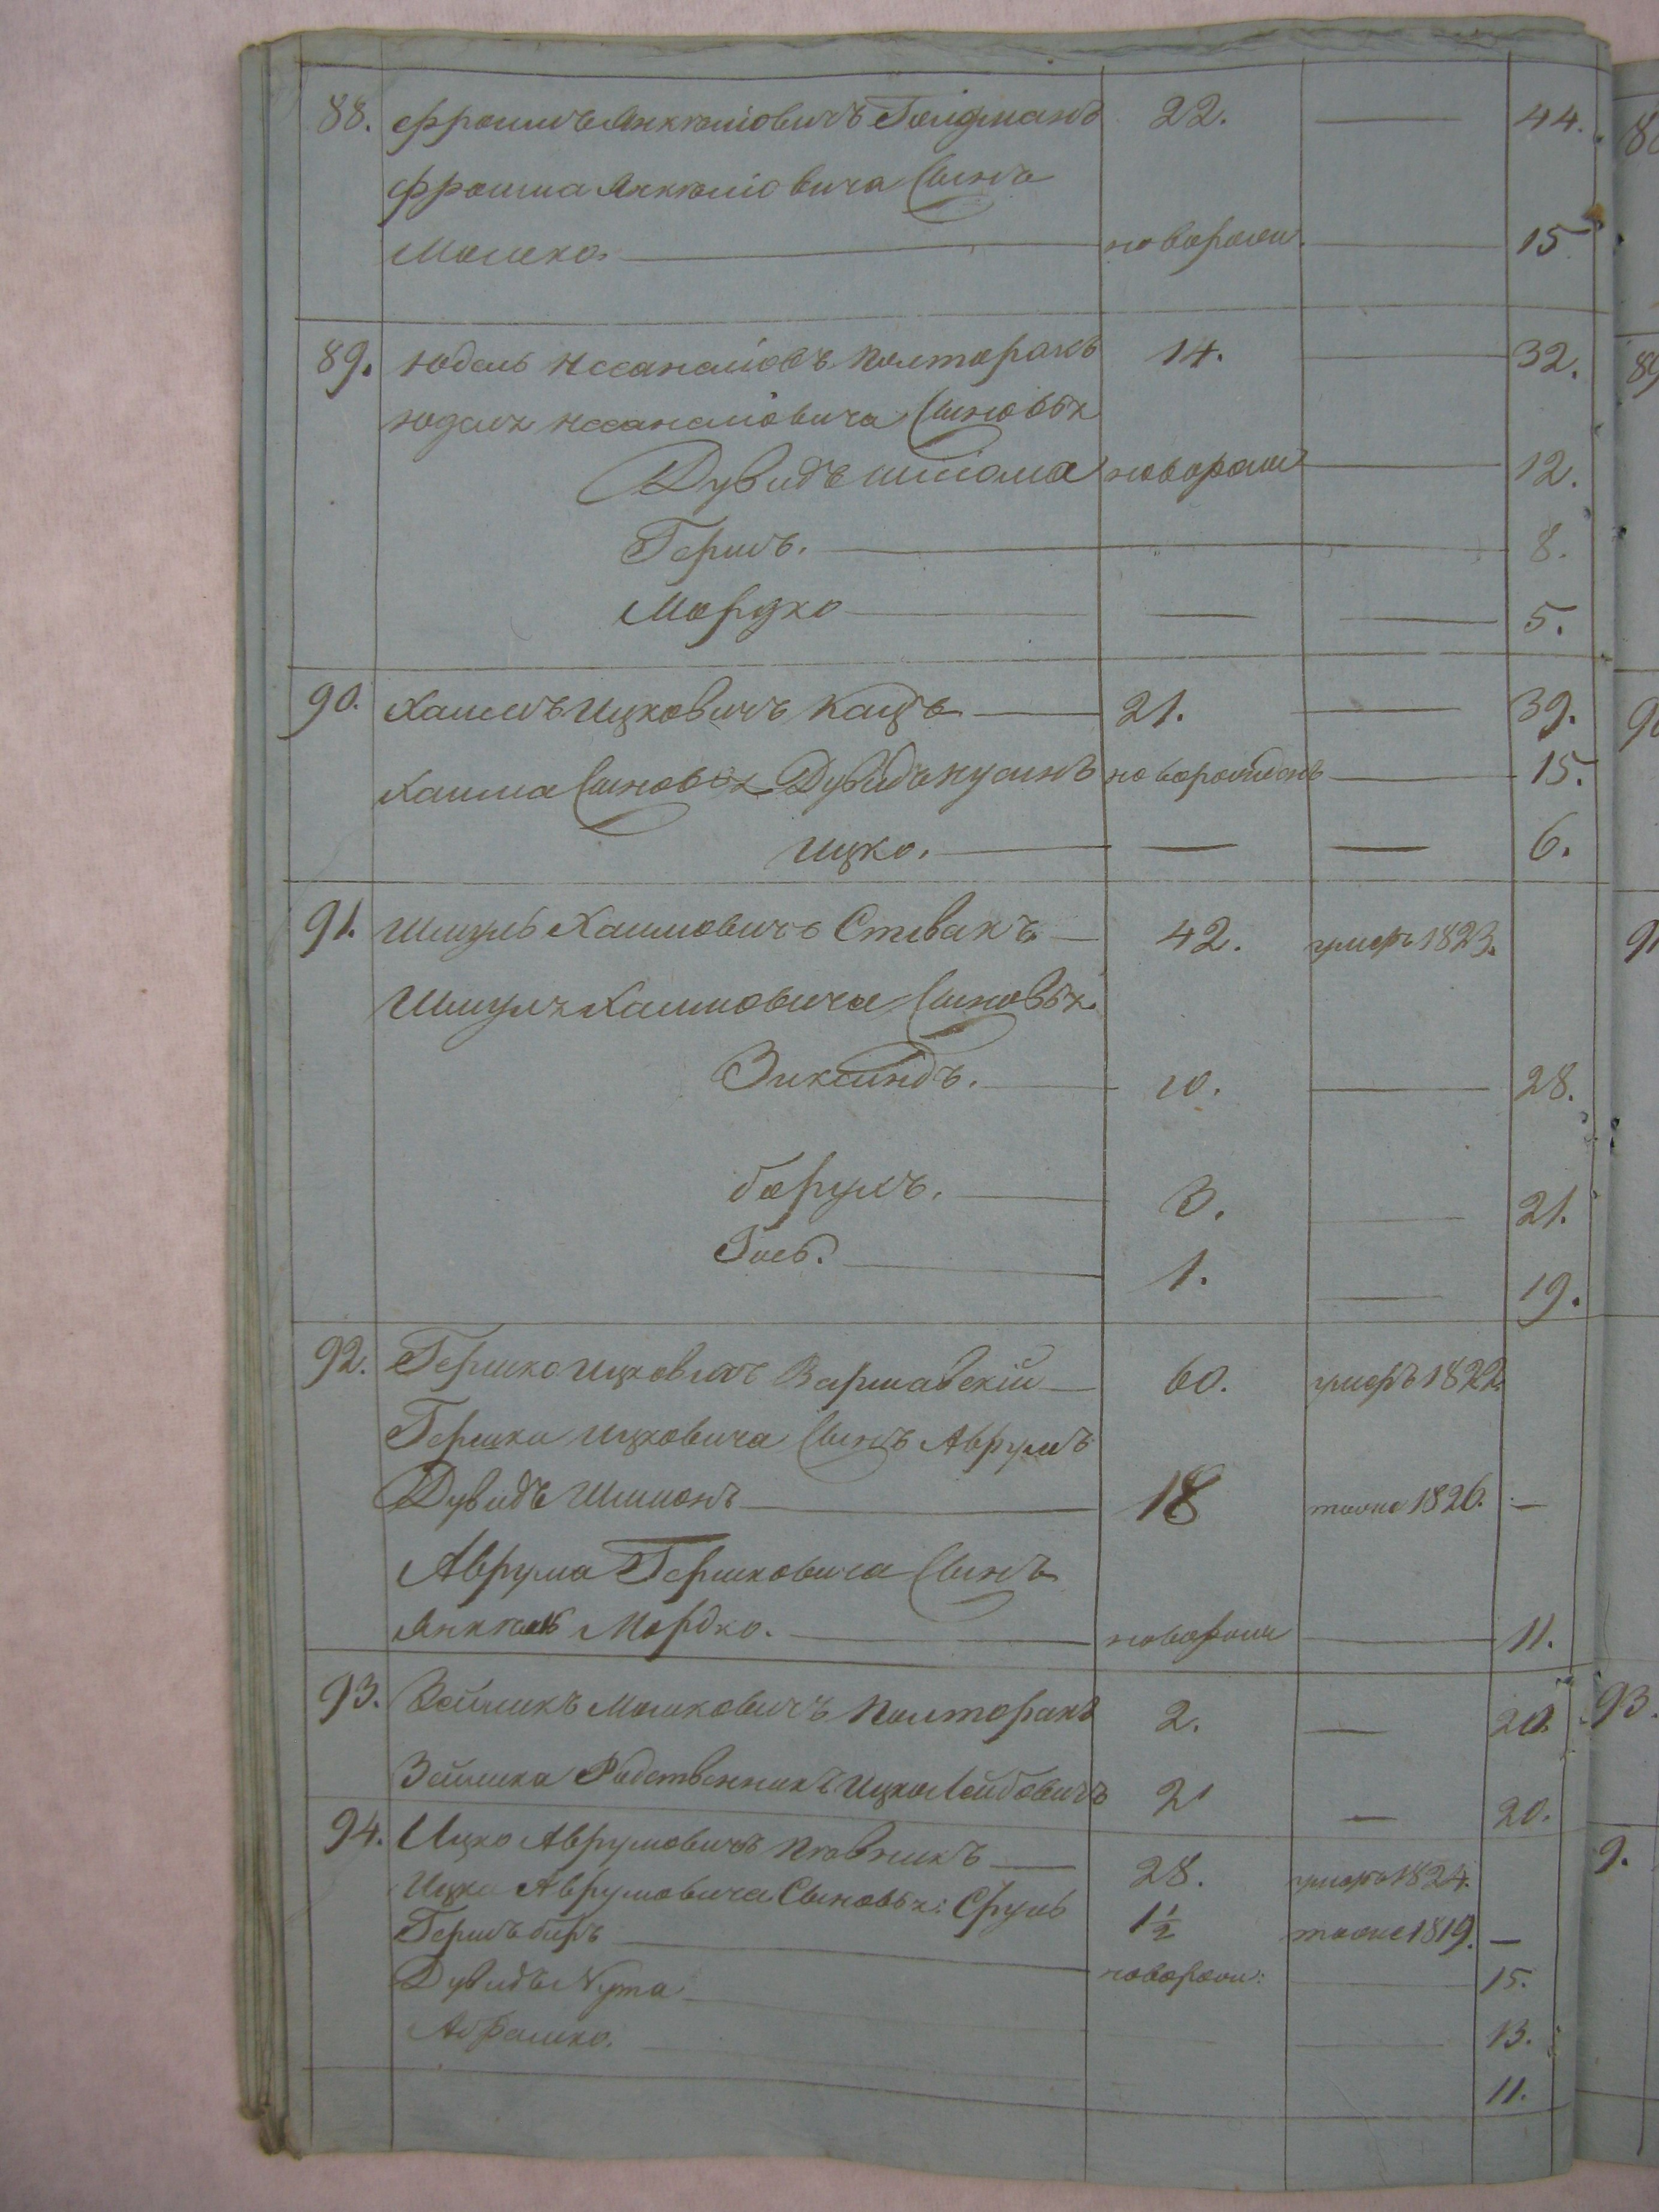 88. Фроимъ Янкелiовичъ Голдманъ 22. — 44.
Фроима Янкелiовича Сынъ
Мошко. — поворожн. — 15
89. Юдель Нссанелiовъ Полторакъ 14. — 32.
Юделя Нссанелiовича Сыновья
Дувидъ шлiома новорож — 12.
Гершъ. — 8.
Мордко — — — 5.
90. Хаимъ Ицковичъ Кацъ — 21. — 39.
Хаима Сыновья Дувидъ нусинъ новорожденъ — 15.
Ицко. — — — 6.
91. Шмуль Хаимовичъ Спивакъ. — 42. умеръ 1823.
Шмуля Хаимовича Сыновья.
Зиксиндъ. — 10. — 28.
борухъ. — 3. — 21.
Iось. — 1. — 19.
92. Гершко Ицковичъ Варшавскiй — 60. умеръ 1822.
Гершка Ицковича Сынъ Аврумъ
Дувидъ Шимонъ — 18 тоже 1826. —
Аврума Гершковича Сынъ
Янкель Мордко. — новорож — 11.
93. Зейликъ Мошковичъ Полторакъ 2. — 20.
Зейлика Родственникъ Ицко Лейбовичъ 2 — 20.
94. Ицко Аврумовичъ 28. умеръ 1824.
Ицка Аврумовича Сыновья: Сруль 1½ тоже 1819. —
Гершъ беръ — новорож: — 15.
Дувидъ Нута — 13.
Абрашко. — 11.
93.
9.